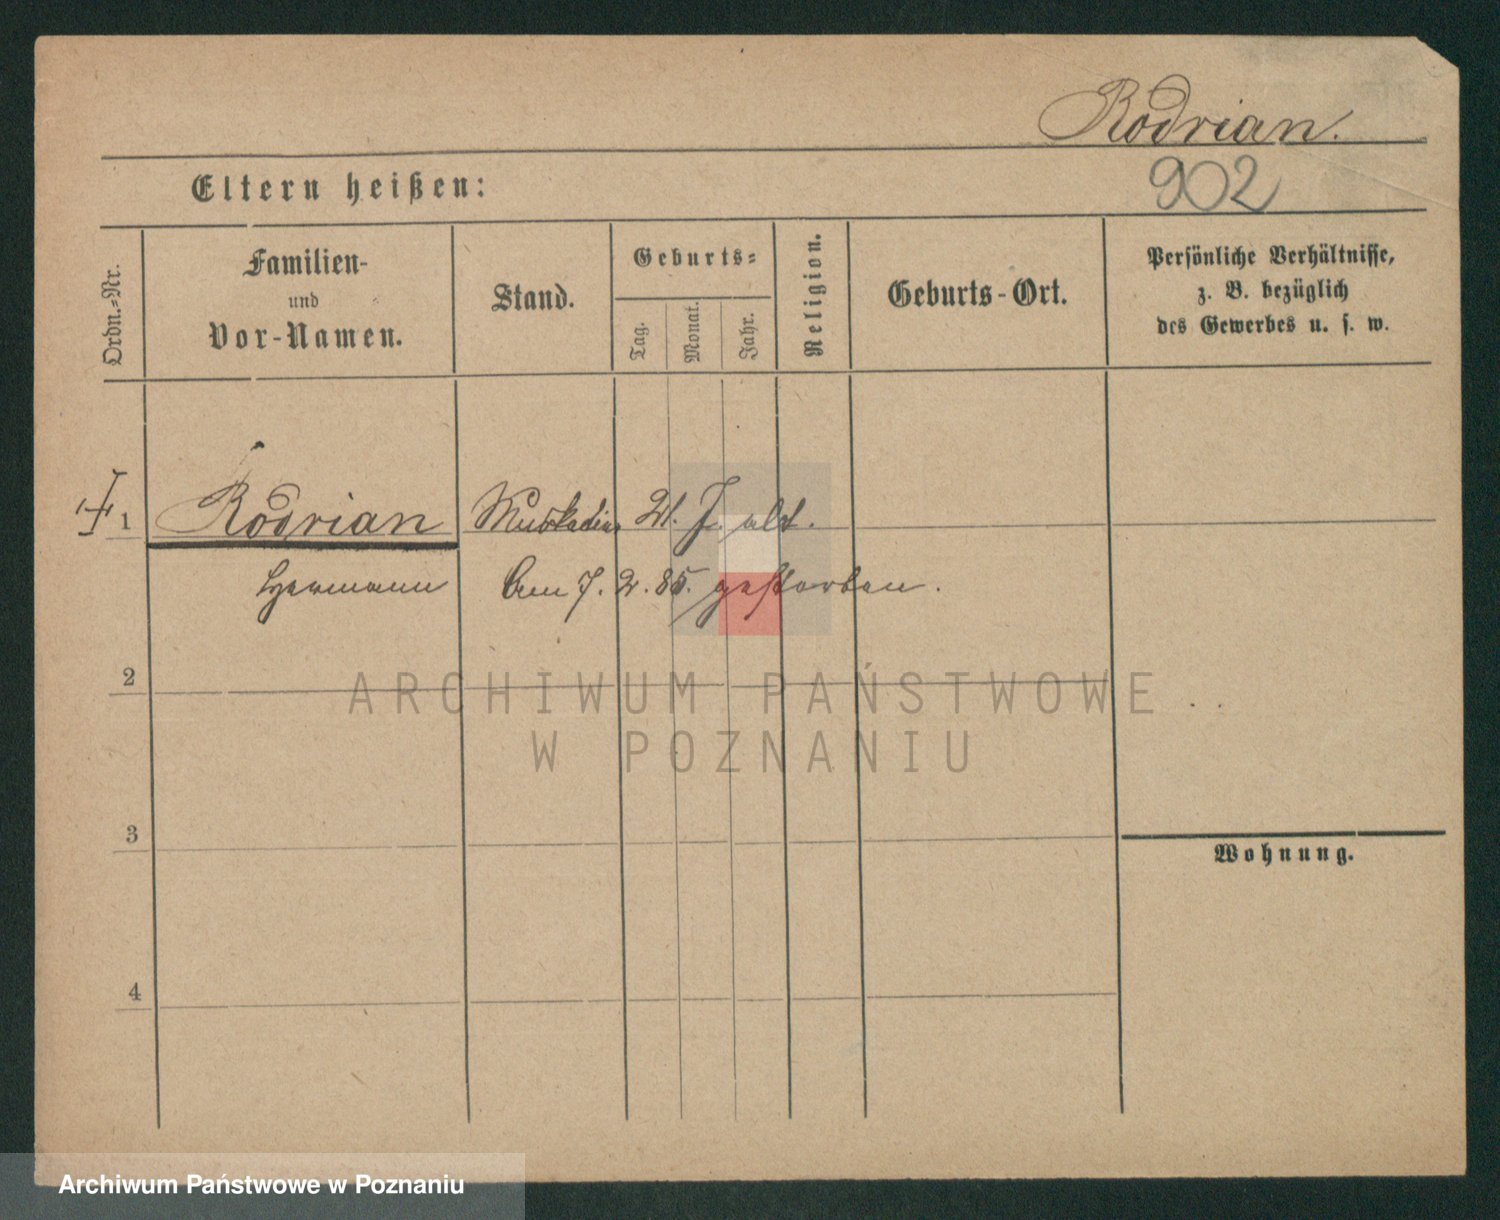 Rodrian.
902
Eltern heißen:
Ordn.-Nr.
Familien-
und
Vor-Namen.
Stand.
Geburts-
Tag.
Monat.
Jahr.
Religion.
Geburts-Ort.
Persönliche Verhältnisse,
z. B. bezüglich
des Gewerbes u. s. w.
1 Rodrian Musketier 21. J. alt.
Hermann Am 7. 2. 85. gestorben.
2
ARCHIWUM PAŃSTWOWE
W POZNANIU
3
Wohnung.
4
Archiwum Państwowe w Poznaniu